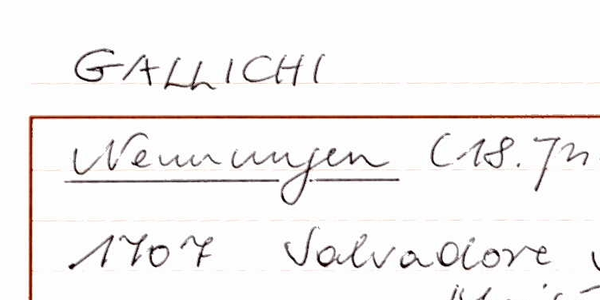 GALLICHI
Nennungen (18. Jh.
1707 Salvadore